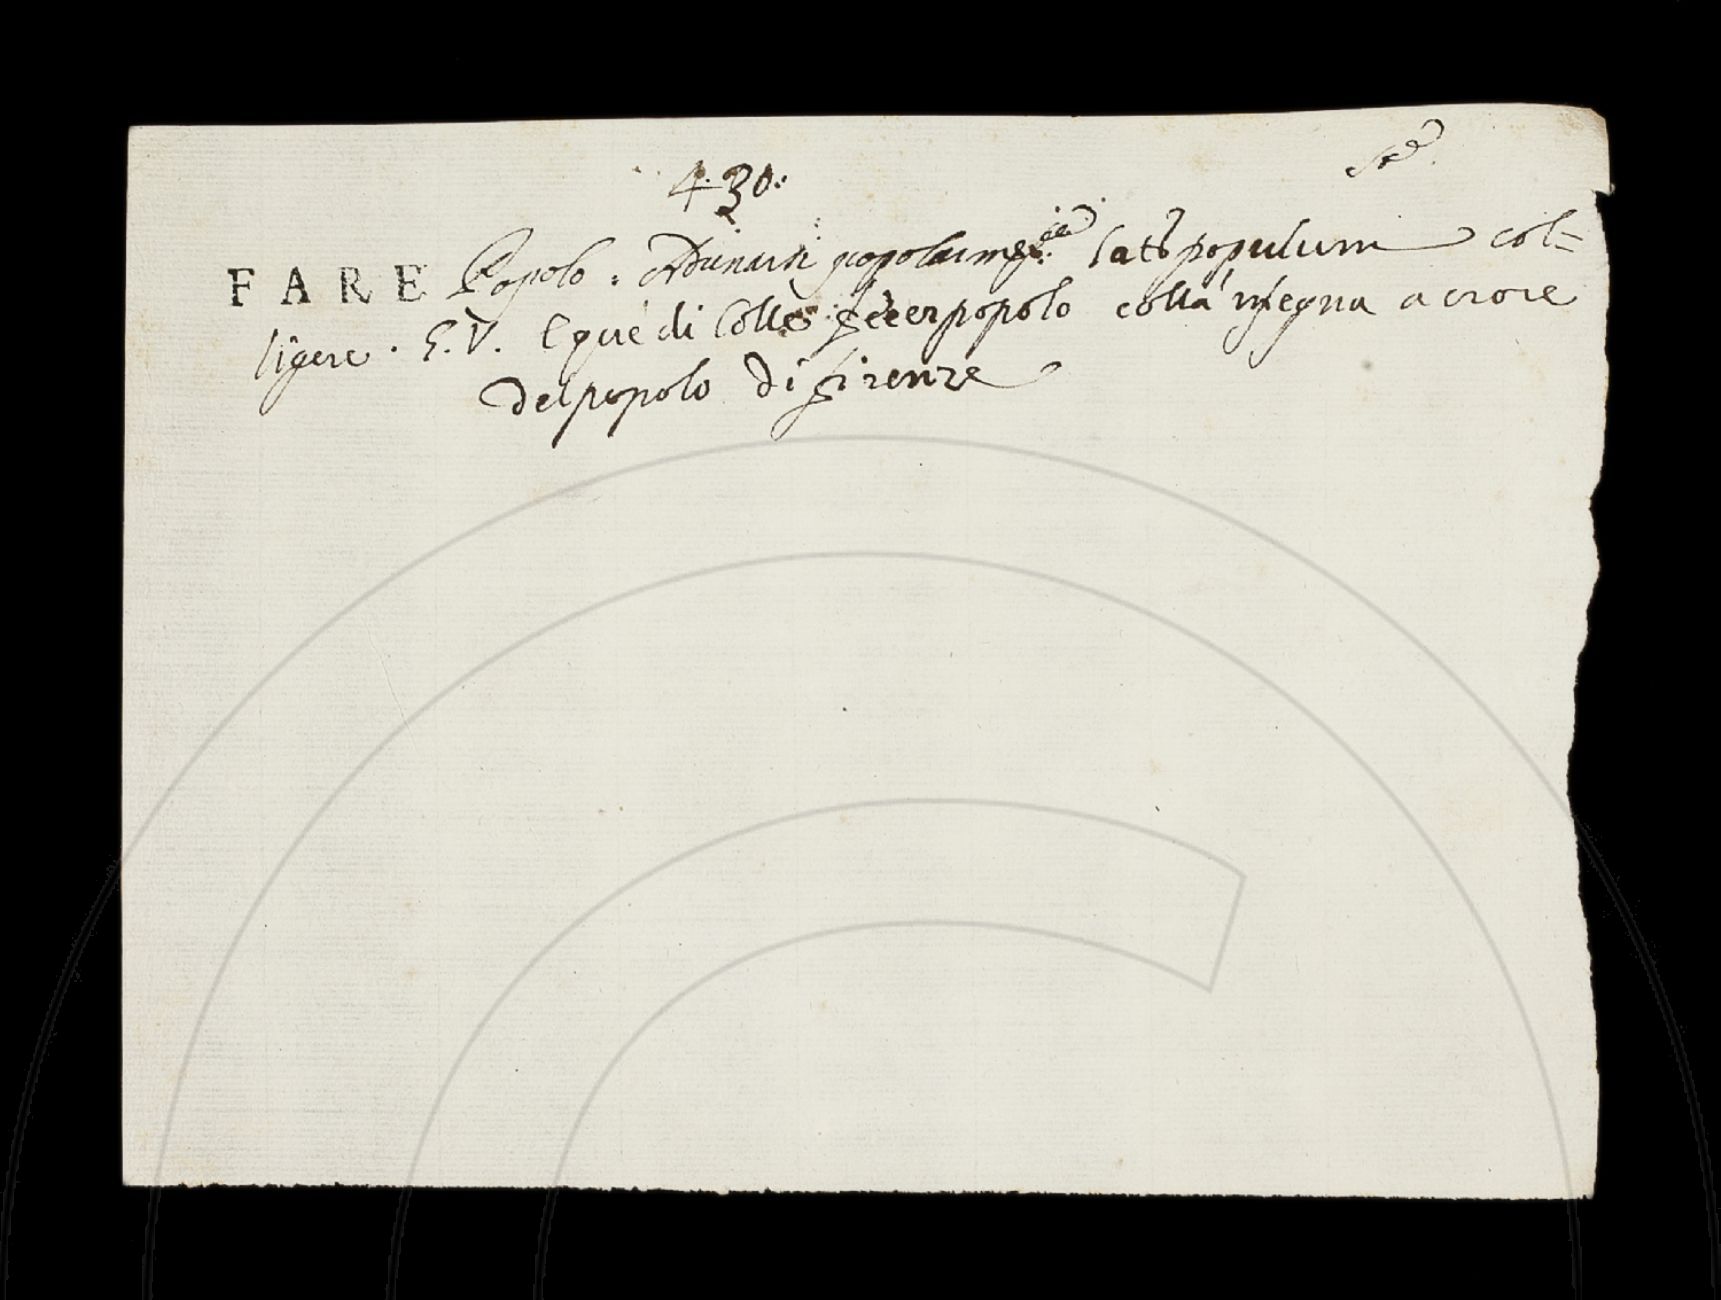 Ste
4.30:
FARE Popolo. Adunarsi popolarmte. Lat. populum col=
ligere. G.V. E que di Colle fecer popolo colla 'nsegna a croce
del popolo di Firenze